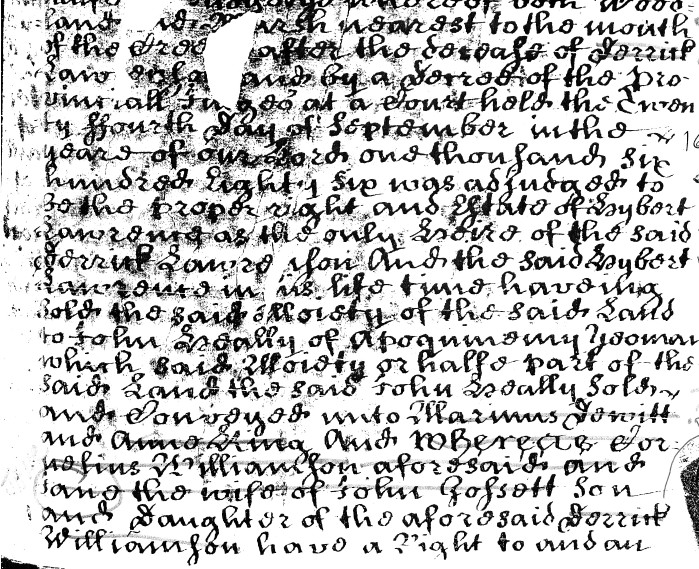 whereof both wood
land is north nearest to the mouth
of the Creek after the decease of Derrick
Law and by a Decree of the Pro
vinciall Judges at a Court held the Twen
ty ffourth Day of September in the
yeare of our Lord one thousand Six
hundred Eighty Six was adjudged to
be the proper right and Estate of Hybert
Lawrence as the only Heire of the said
Derrick Lawre And the said Hybert
Lawrence in his life time haveing
Sold the said Moiety of the said Land
to John Heally of Apoquinemy Yeoman
which said Moiety or halfe part of the
said Land the said John Heally Sold
and Conveyed unto Marinus Dewitt
and Anne King And Whereas Cor
nelius Williamson aforesaid and
Jane the wife of John Gossett Son
and Daughter of the aforesaid Derrick
Williamson have a Right to and an